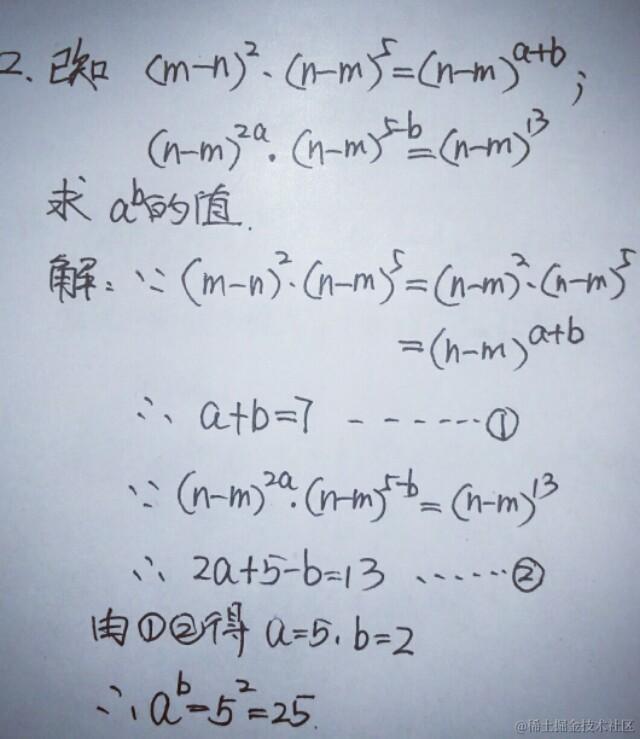 2. 已知 (m-n)²·(n-m)⁵=(n-m)ᵃ⁺ᵇ;
(n-m)²ᵃ·(n-m)⁵⁻ᵇ=(n-m)¹³
求 aᵇ的值.
解: ∵ (m-n)²·(n-m)⁵=(n-m)²·(n-m)⁵
=(n-m)ᵃ⁺ᵇ
∴ a+b=7 ------①
∵ (n-m)²ᵃ·(n-m)⁵⁻ᵇ=(n-m)¹³
∴ 2a+5-b=13 ......②
由①②得 a=5, b=2
∴ aᵇ=5²=25.
@稀土掘金技术社区